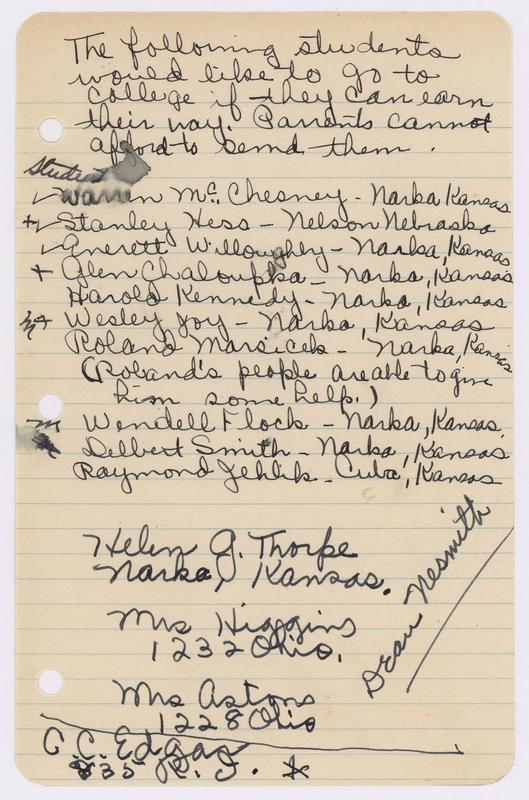 The following students
would like to go to
college if they can earn
their way. Parents cannot
afford to send them.
Student
Warren Mc.Chesney - Narka Kansas
+ Stanley Hess - Nelson Nebraska
Everett Willoughby - Narka, Kansas
+ Glen Chaloupka - Narka, Kansas
Harold Kennedy - Narka, Kansas
Wesley Joy - Narka, Kansas
Roland Marsicek - Narka, Kansas
(Roland's people are able to give
him some help.)
Wendell Flock - Narka, Kansas.
Delbert Smith - Narka, Kansas
Raymond Jehlik - Cuba, Kansas
Helen G. Thorpe
Narka, Kansas.
Dean Nesmith
Mrs Higgins
1232 Ohio.
Mrs Astons
1228 Ohio
C.C. Edgar